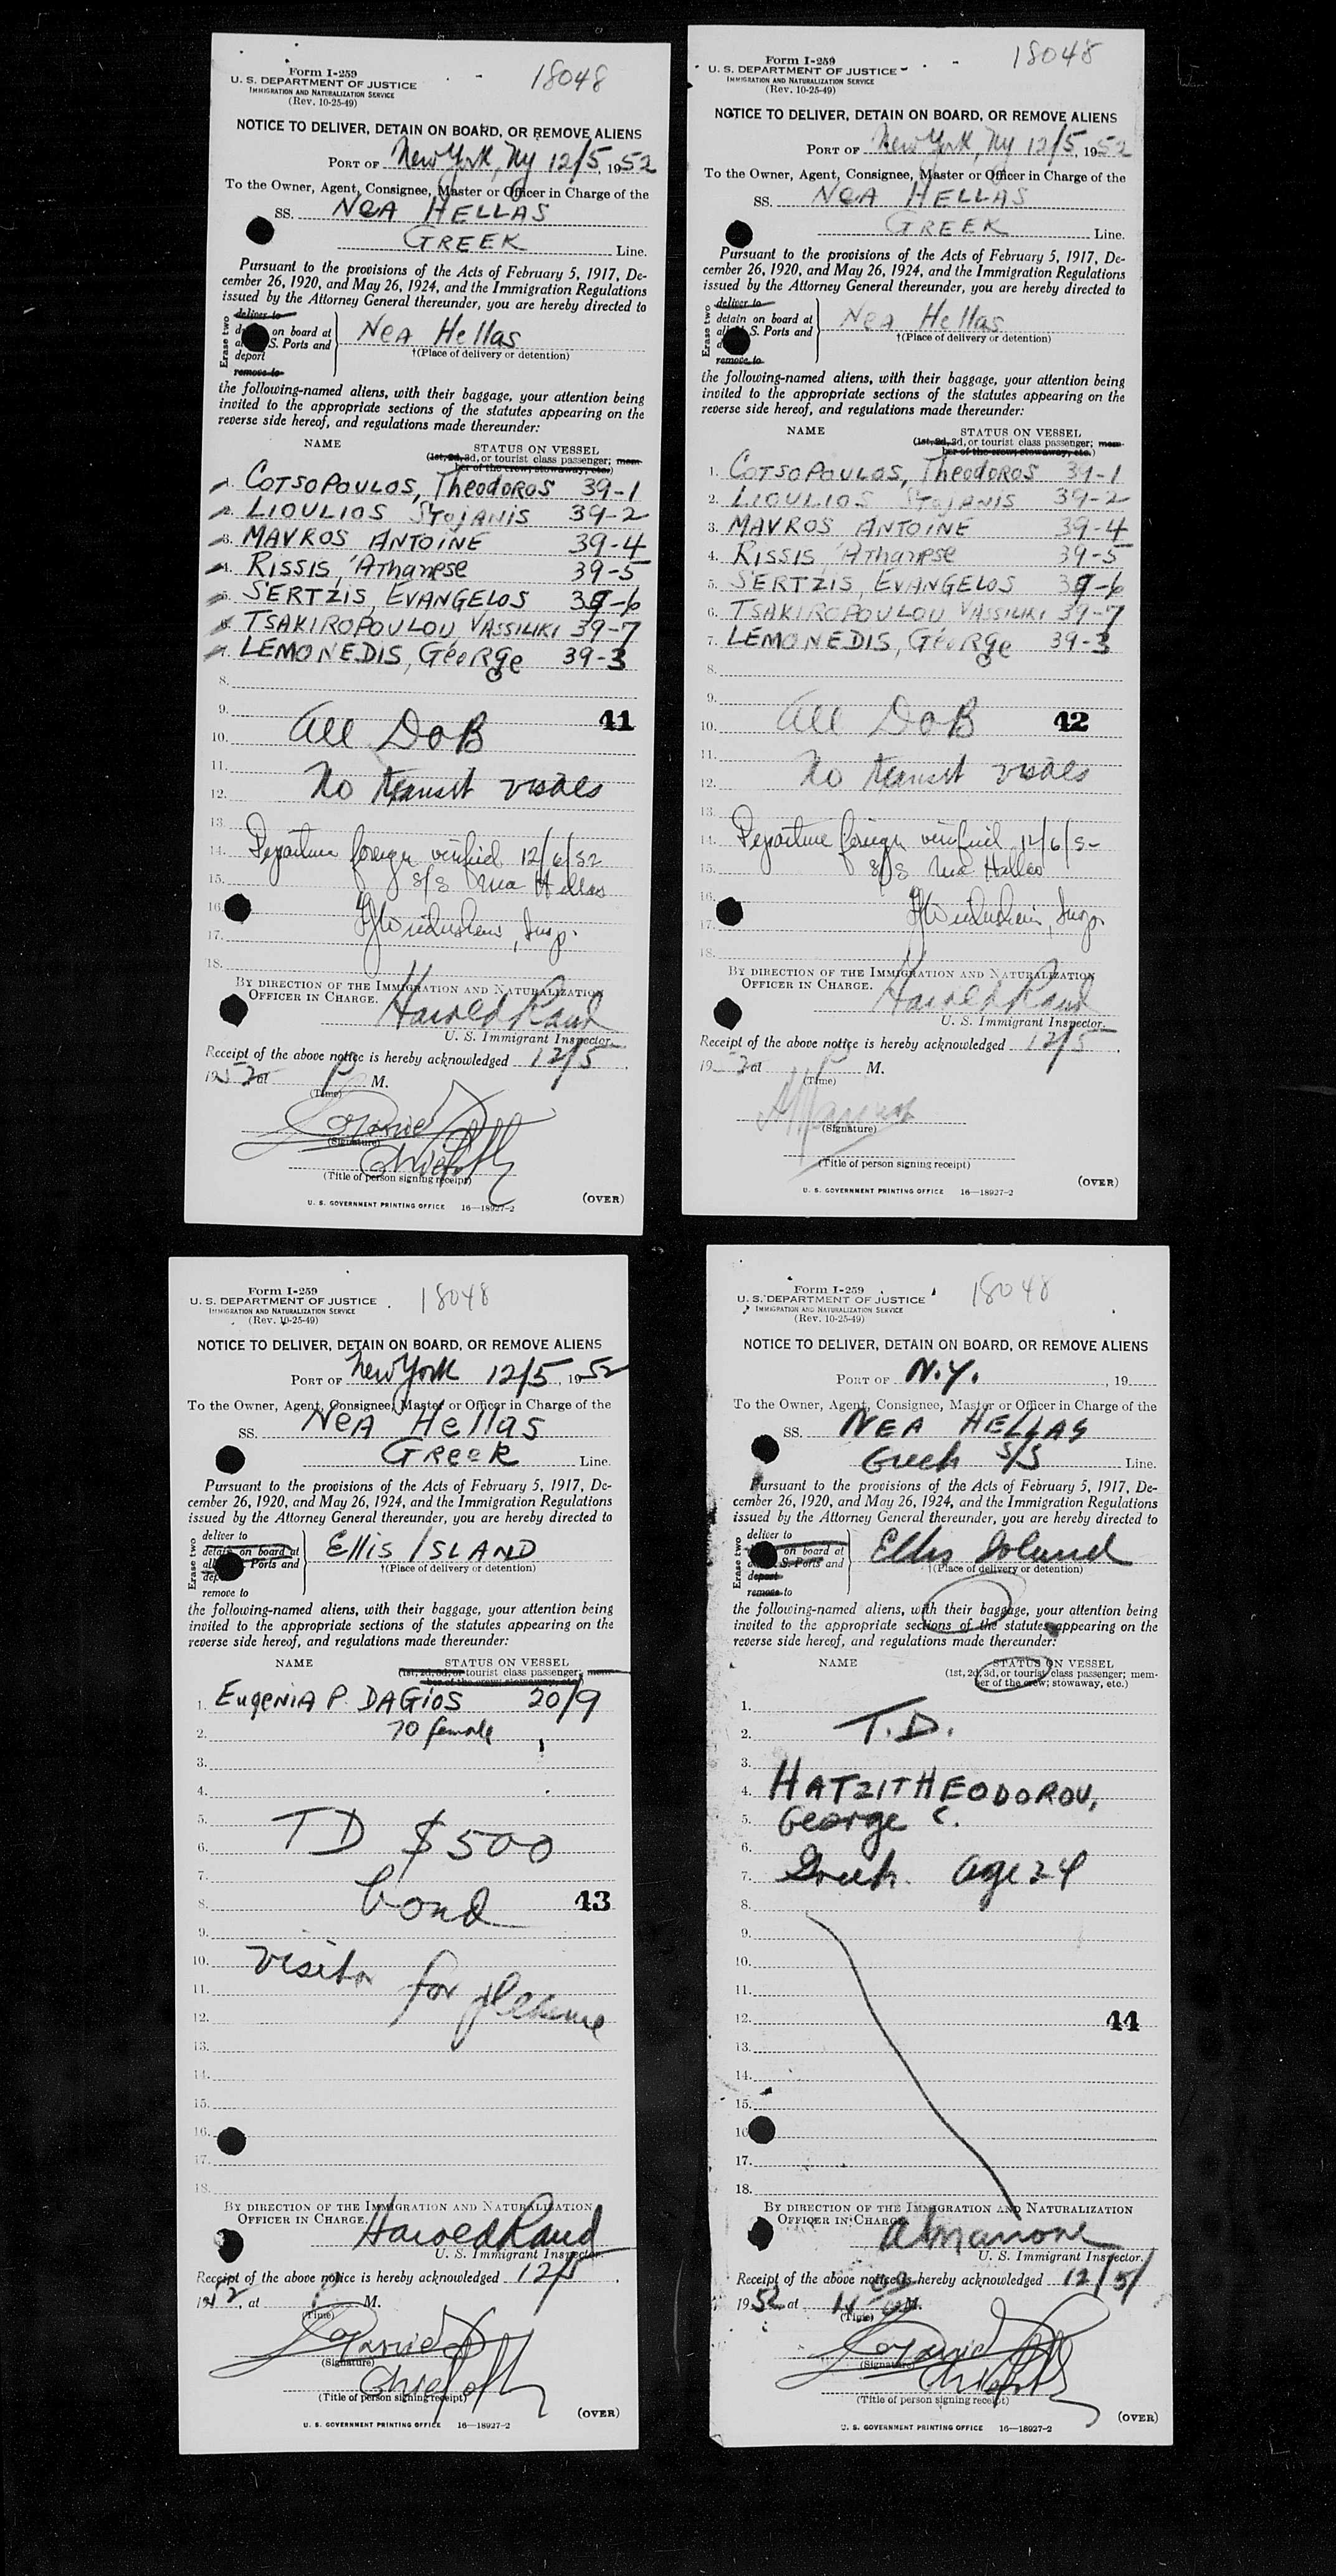 Form I-259
U. S. DEPARTMENT OF JUSTICE
IMMIGRATION AND NATURALIZATION SERVICE
(Rev. 10-25-49)
18048
NOTICE TO DELIVER, DETAIN ON BOARD, OR REMOVE ALIENS
PORT OF New York, Ny 12/5, 1952
To the Owner, Agent, Consignee, Master or Officer in Charge of the
SS. NeA HELLAS
GREEK Line.
Pursuant to the provisions of the Acts of February 5, 1917, De-
cember 26, 1920, and May 26, 1924, and the Immigration Regulations
issued by the Attorney General thereunder, you are hereby directed to
Erase two
deliver to
on board at
S. Ports and
deport
remove to
Nea Hellas
†(Place of delivery or detention)
the following-named aliens, with their baggage, your attention being
invited to the appropriate sections of the statutes appearing on the
reverse side hereof, and regulations made thereunder:
NAME STATUS ON VESSEL
(1st, 2d, 3d, or tourist class passenger; mem-
ber of the crew; stowaway, etc.)
1. COTSOPOULOS, TheODOROS 39-1
2. LIOULIOS STOJANIS 39-2
3. MAVROS ANTOINE 39-4
4. RISSIS, Athanese 39-5
5. SERTZIS, EVANGELOS 39-6
6. TSAKIROPOULOU, VASSILIKI 39-7
7. LEMONEDIS, GeoRge 39-3
8.
9. 41
10. All DOB
11.
12. No transit visaes
13.
14. Departure foreign verified 12/6/52
15. S/S Nea Hellas
16.
17. Insp.
18.
BY DIRECTION OF THE IMMIGRATION AND NATURALIZATION
OFFICER IN CHARGE.
Harold Rand
U. S. Immigrant Inspector.
Receipt of the above notice is hereby acknowledged 12/5
1952 at P M.
(Time)
(Signature)
Chief
(Title of person signing receipt)
U. S. GOVERNMENT PRINTING OFFICE 16—18927-2
(OVER)
Form I-259
U. S. DEPARTMENT OF JUSTICE
IMMIGRATION AND NATURALIZATION SERVICE
(Rev. 10-25-49)
18048
NOTICE TO DELIVER, DETAIN ON BOARD, OR REMOVE ALIENS
PORT OF New York, Ny 12/5, 1952
To the Owner, Agent, Consignee, Master or Officer in Charge of the
SS. NeA HELLAS
GREEK Line.
Pursuant to the provisions of the Acts of February 5, 1917, De-
cember 26, 1920, and May 26, 1924, and the Immigration Regulations
issued by the Attorney General thereunder, you are hereby directed to
Erase two
deliver to
detain on board at
S. Ports and
remove to
Nea Hellas
†(Place of delivery or detention)
the following-named aliens, with their baggage, your attention being
invited to the appropriate sections of the statutes appearing on the
reverse side hereof, and regulations made thereunder:
NAME STATUS ON VESSEL
(1st, 2d, 3d, or tourist class passenger; mem-
ber of the crew; stowaway, etc.)
1. COTSOPOULOS, TheODOROS 39-1
2. LIOULIOS STOJANIS 39-2
3. MAVROS ANTOINE 39-4
4. RISSIS, Athanese 39-5
5. SERTZIS, EVANGELOS 39-6
6. TSAKIROPOULOU VASSILIKI 39-7
7. LEMONEDIS, GeoRge 39-3
8.
9.
10. All DOB 42
11.
12. No transit visaes
13.
14. Departure foreign verified 12/6/5
15. S/S Nea Hellas
16.
17. Insp.
18.
BY DIRECTION OF THE IMMIGRATION AND NATURALIZATION
OFFICER IN CHARGE.
Harold Rand
U. S. Immigrant Inspector.
Receipt of the above notice is hereby acknowledged 12/5.
19 2 at P M.
(Time)
(Signature)
(Title of person signing receipt)
U. S. GOVERNMENT PRINTING OFFICE 16—18927-2
(OVER)
Form I-259
U. S. DEPARTMENT OF JUSTICE
IMMIGRATION AND NATURALIZATION SERVICE
(Rev. 10-25-49)
18048
NOTICE TO DELIVER, DETAIN ON BOARD, OR REMOVE ALIENS
PORT OF New York 12/5, 1952
To the Owner, Agent, Consignee, Master or Officer in Charge of the
SS. NeA Hellas
GReeK Line.
Pursuant to the provisions of the Acts of February 5, 1917, De-
cember 26, 1920, and May 26, 1924, and the Immigration Regulations
issued by the Attorney General thereunder, you are hereby directed to
Erase two
deliver to
detain on board at
Ports and
remove to
Ellis ISLAND
†(Place of delivery or detention)
the following-named aliens, with their baggage, your attention being
invited to the appropriate sections of the statutes appearing on the
reverse side hereof, and regulations made thereunder:
NAME STATUS ON VESSEL
(1st, 2d, 3d, or tourist class passenger; mem-
ber of the crew; stowaway, etc.)
1. EugeNIA P. DAGIOS 20/9
2. 70 female
3.
4.
5.
6. TD $500
7.
8. bond 43
9.
10. Visitor
11. for pleasure
12.
13.
14.
15.
16.
17.
18.
BY DIRECTION OF THE IMMIGRATION AND NATURALIZATION
OFFICER IN CHARGE.
Harold Rand
U. S. Immigrant Inspector.
Receipt of the above notice is hereby acknowledged 12/5
1952, at P M.
(Time)
(Signature)
Chief
(Title of person signing receipt)
U. S. GOVERNMENT PRINTING OFFICE 16—18927-2
(OVER)
Form I-259
U. S. DEPARTMENT OF JUSTICE
IMMIGRATION AND NATURALIZATION SERVICE
(Rev. 10-25-49)
18048
NOTICE TO DELIVER, DETAIN ON BOARD, OR REMOVE ALIENS
PORT OF N.Y. , 19
To the Owner, Agent, Consignee, Master or Officer in Charge of the
SS. NEA HELLAS
Greek S/S Line.
Pursuant to the provisions of the Acts of February 5, 1917, De-
cember 26, 1920, and May 26, 1924, and the Immigration Regulations
issued by the Attorney General thereunder, you are hereby directed to
Erase two
deliver to
on board at
S. Ports and
deport
remove to
Ellis Island
†(Place of delivery or detention)
the following-named aliens, with their baggage, your attention being
invited to the appropriate sections of the statutes appearing on the
reverse side hereof, and regulations made thereunder:
NAME STATUS ON VESSEL
(1st, 2d, 3d, or tourist class passenger; mem-
ber of the crew; stowaway, etc.)
1.
2. T.D.
3.
4. HATZITHEODOROU,
5. George C.
6.
7. Greek. age 24
8.
9.
10.
11.
12. 44
13.
14.
15.
16.
17.
18.
BY DIRECTION OF THE IMMIGRATION AND NATURALIZATION
OFFICER IN CHARGE
U. S. Immigrant Inspector.
Receipt of the above notice is hereby acknowledged 12/5/
1952 at M.
(Time)
(Signature)
Chief
(Title of person signing receipt)
U. S. GOVERNMENT PRINTING OFFICE 16—18927-2
(OVER)